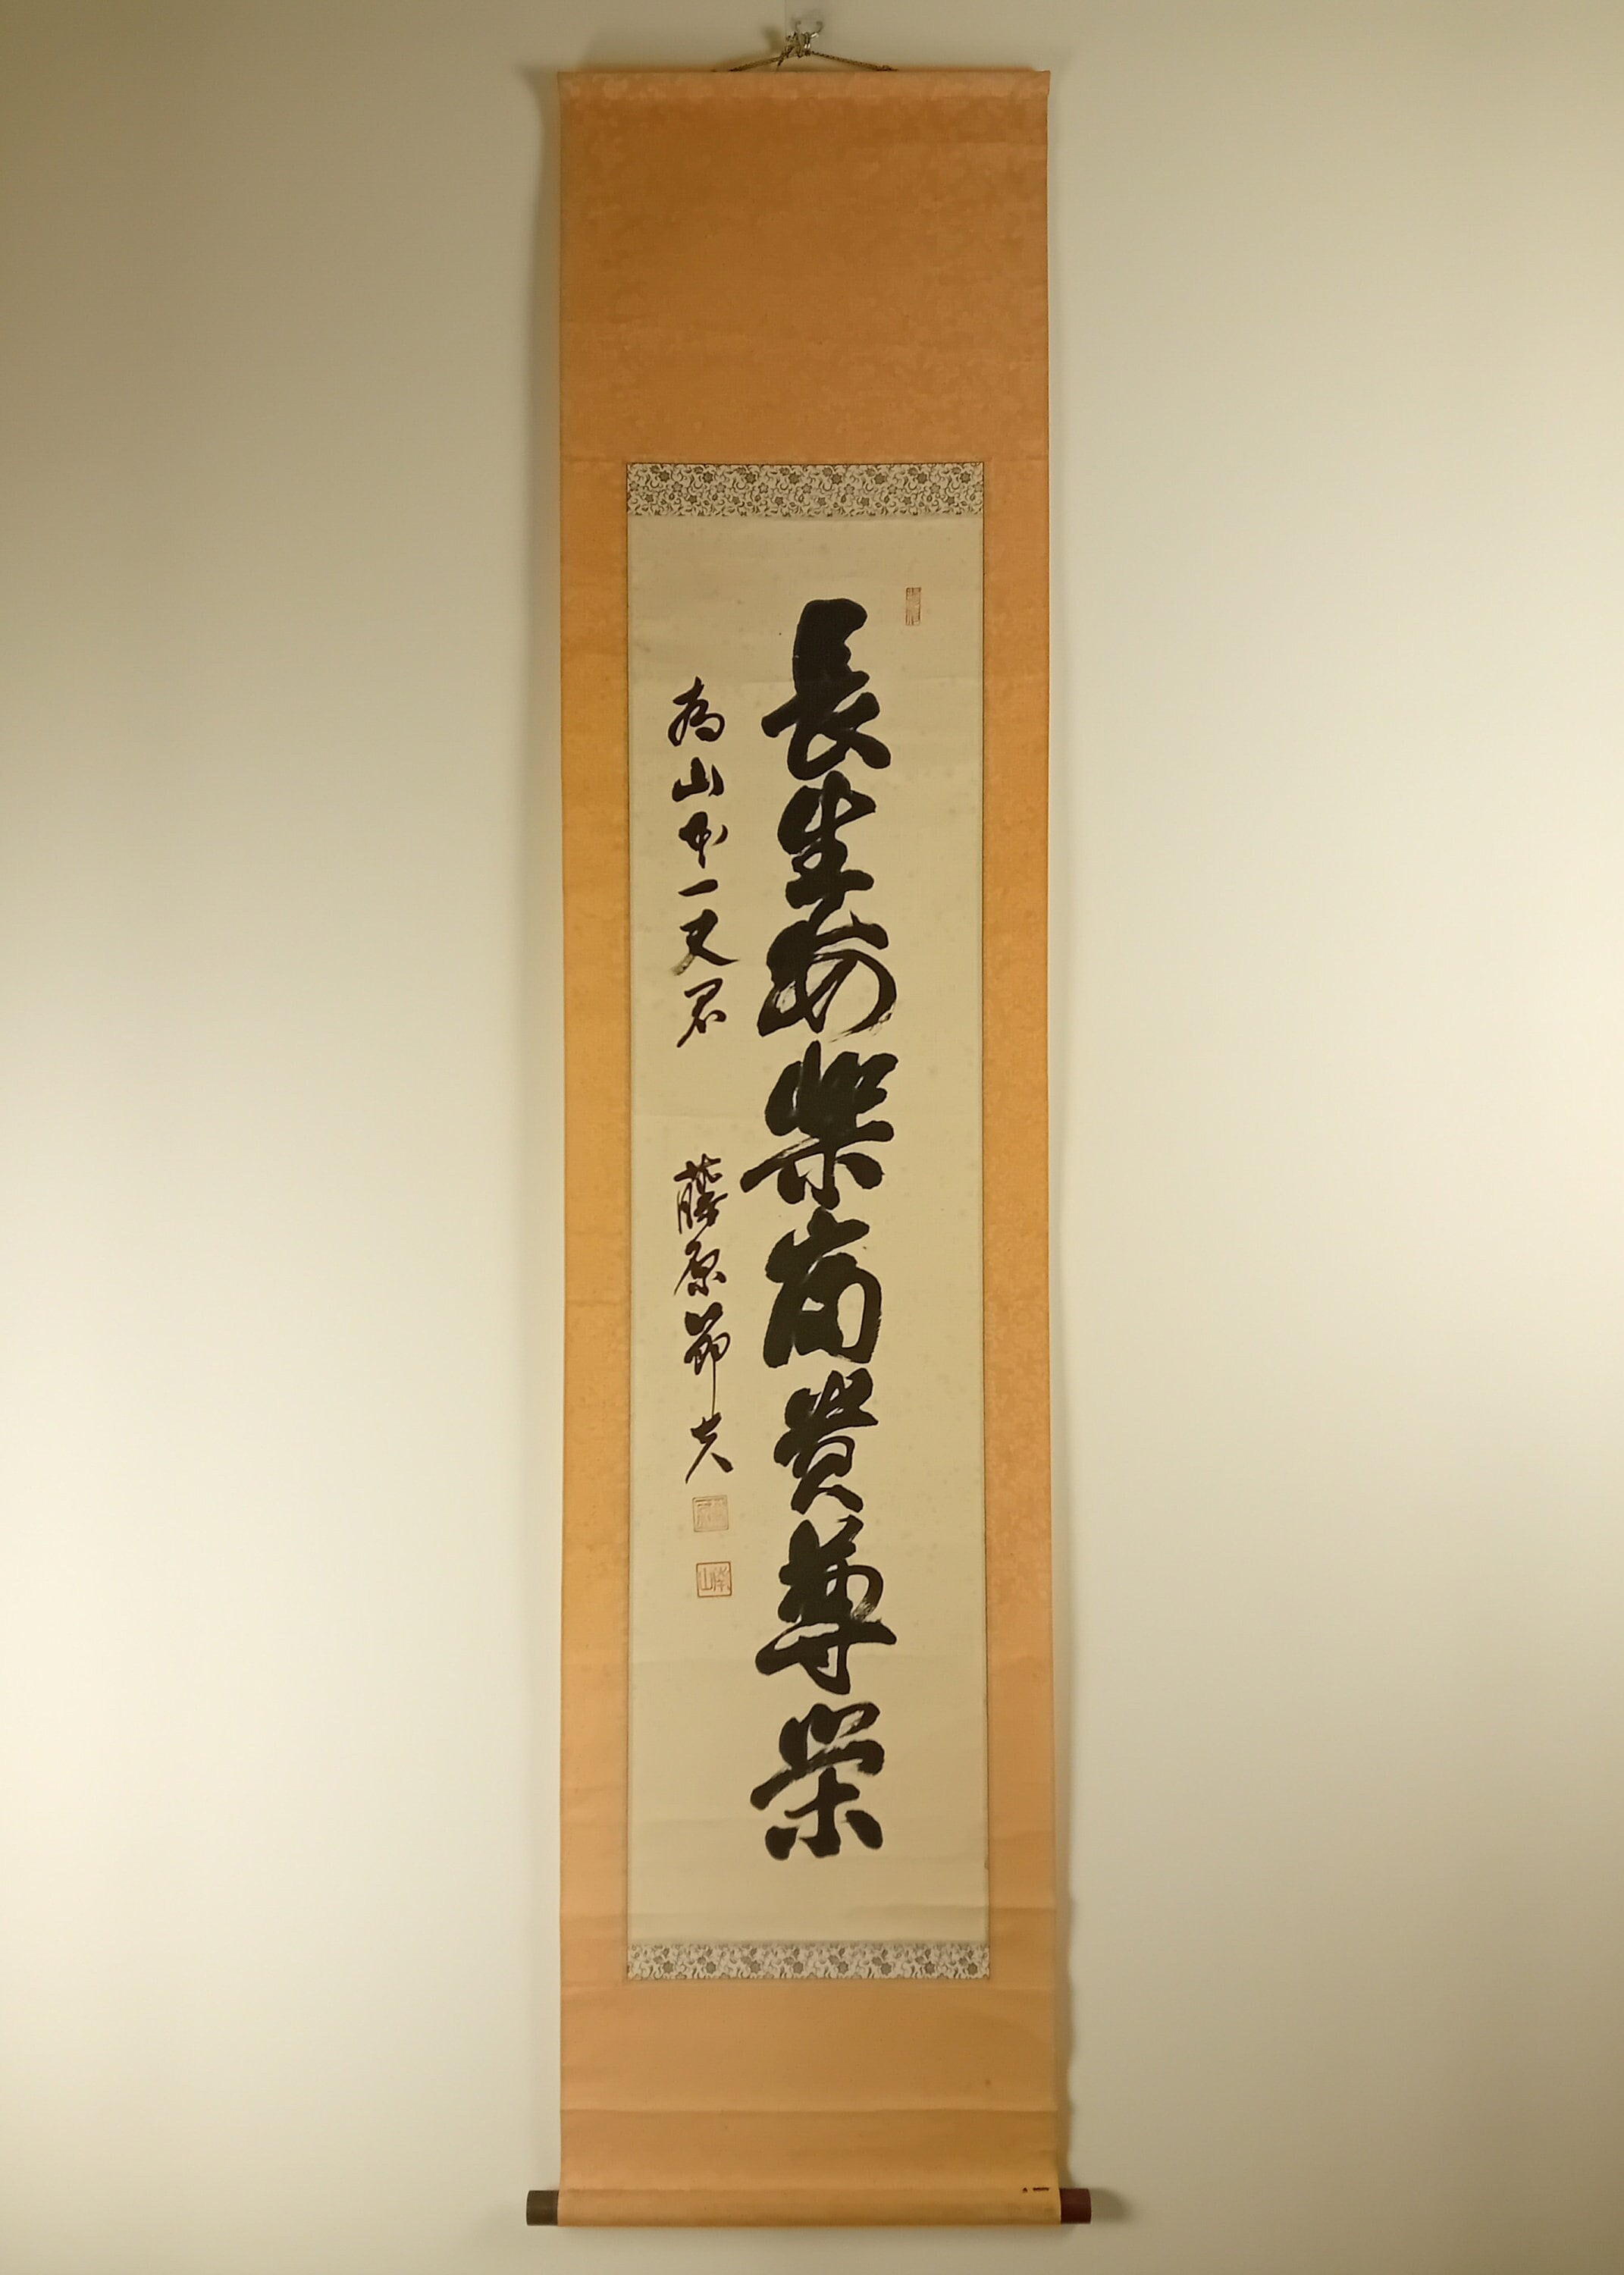 長生安楽富貴尊栄
為山本一夫君
藤原節夫